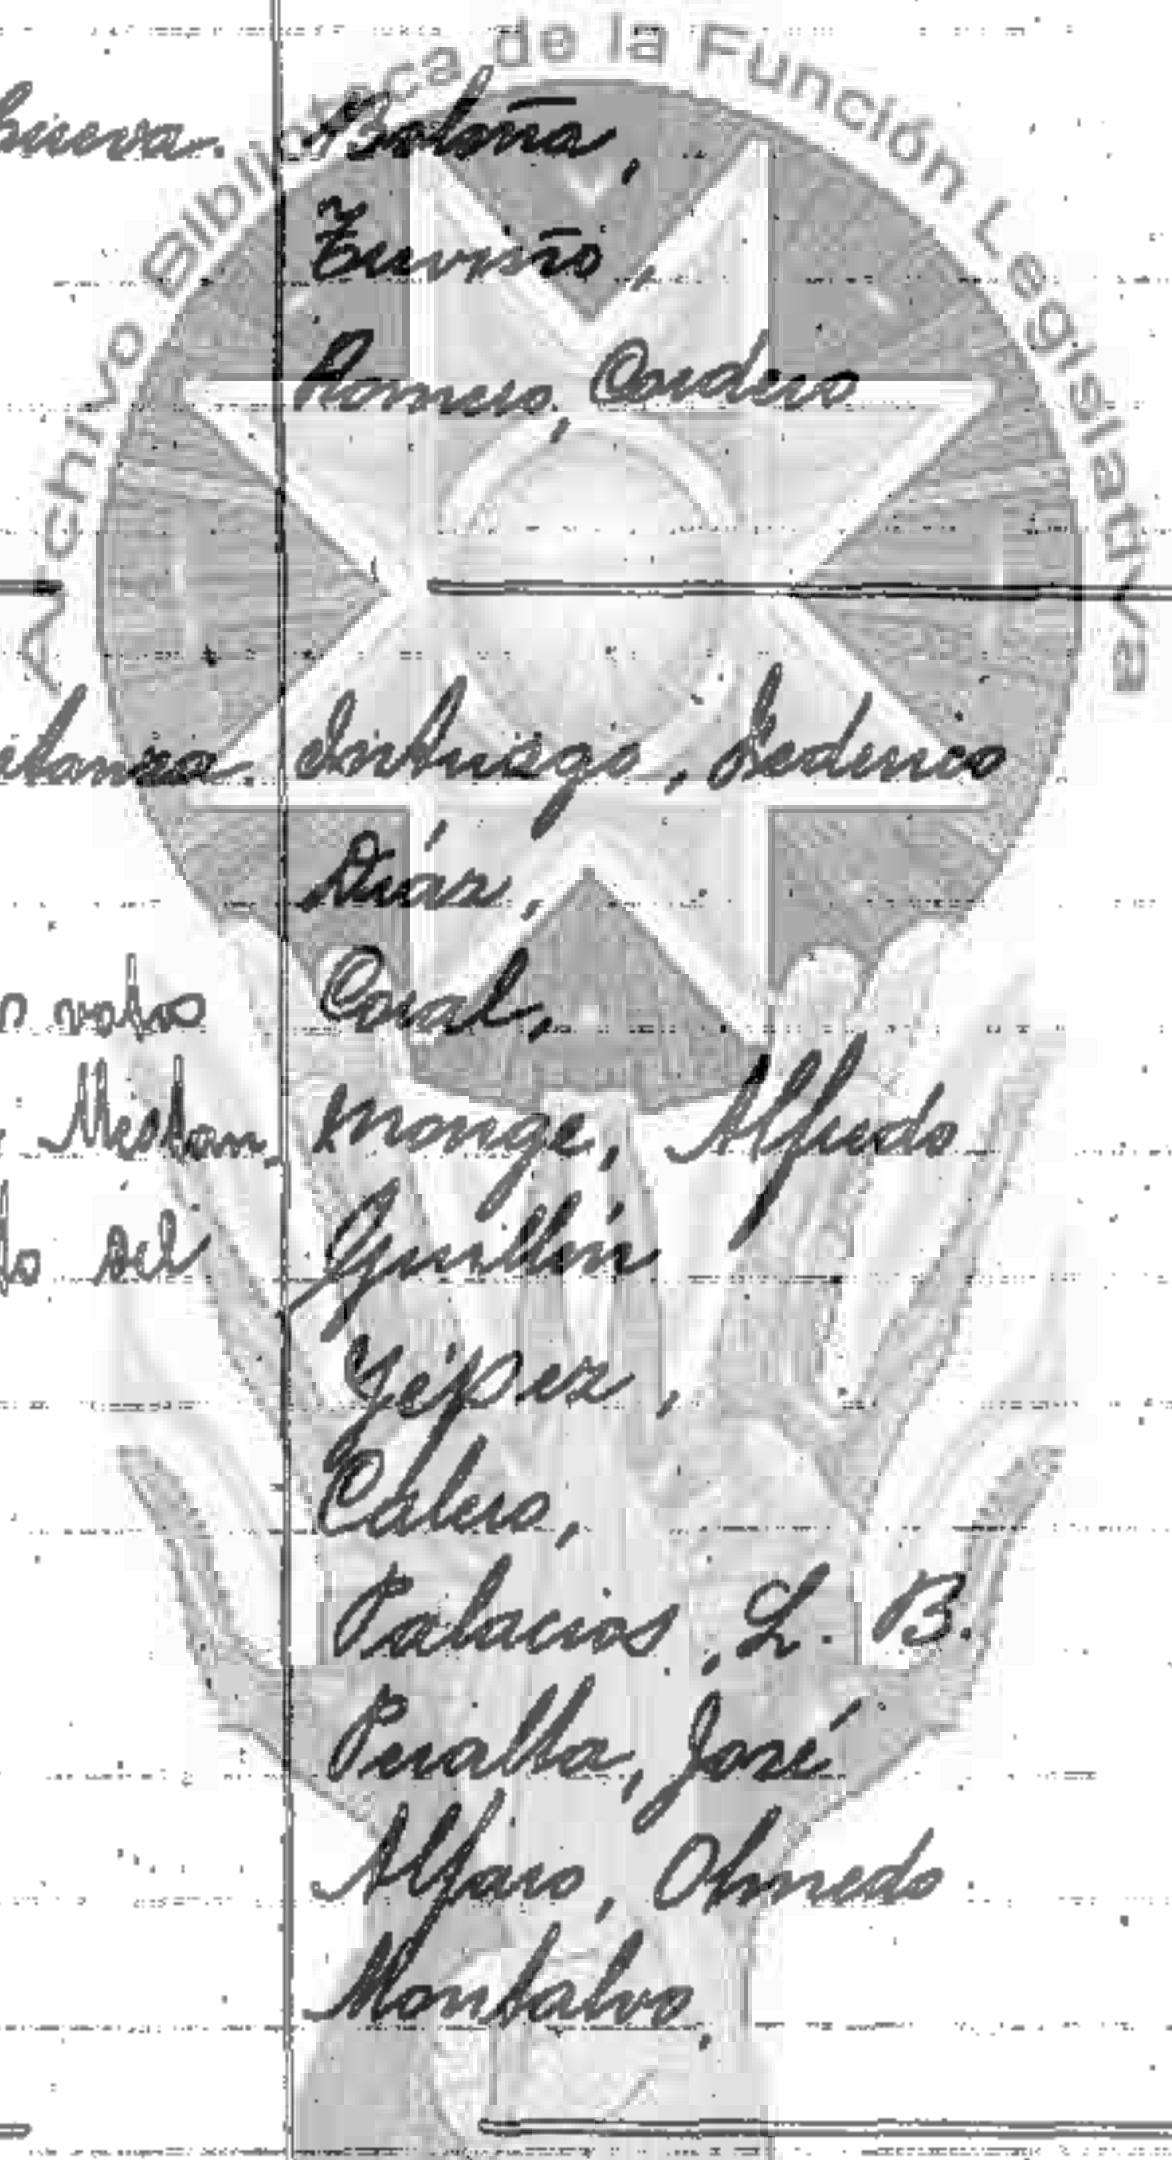 Archivo Biblioteca de la Función Legislativa
Boloña,
Treviño,
Romero, Cordero
Intriago, Federico
Díaz,
Coral,
Monge, Alfredo
Guillén
Yépez,
votos Calero,
Palacios, L. B.
Peralta, José
Alfaro, Olmedo
Montalvo,